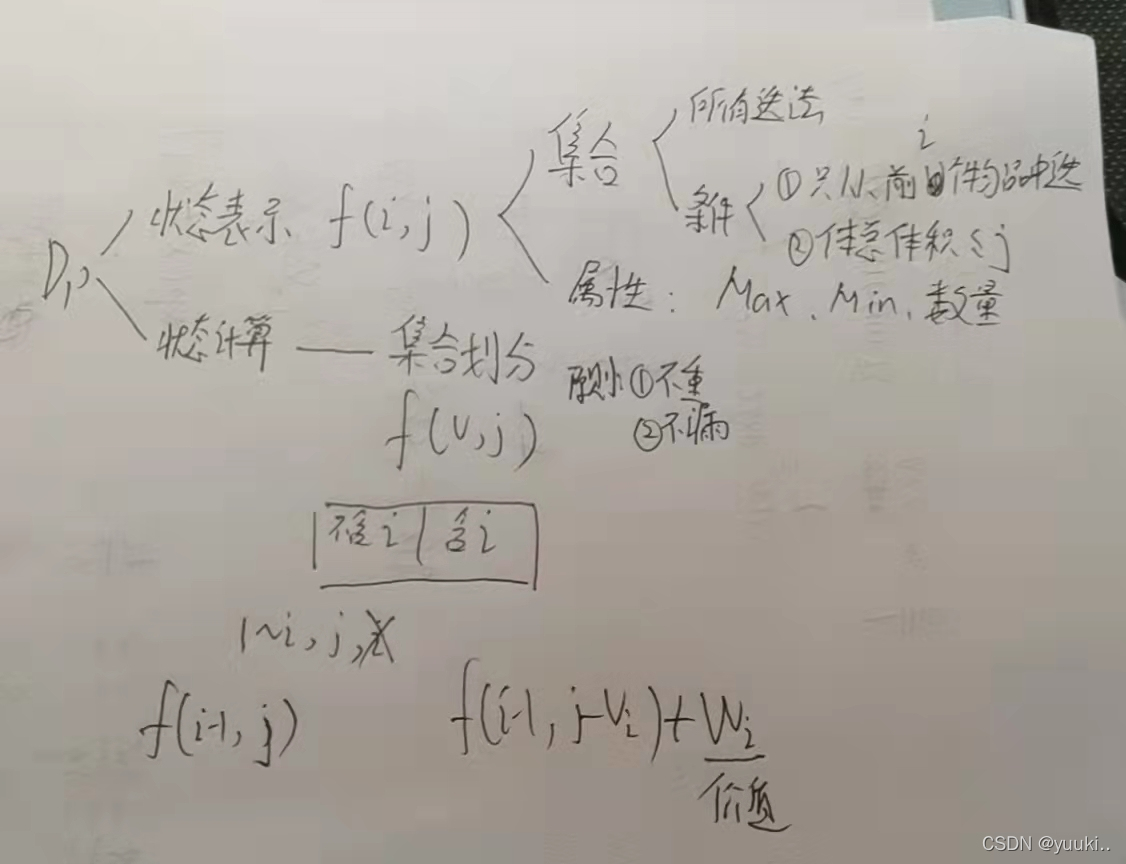 集合
所有选法
条件
i
①只从前个物品中选
②体总体积≤j
状态表示 f(i,j)
属性: Max、Min、数量
DP
状态计算 — 集合划分
原则①不重
②不漏
f(v,j)
不含i 含i
1~i,j,
f(i-1,j)
f(i-1,j-Vi)+Wi
价值
CSDN @yuuki..